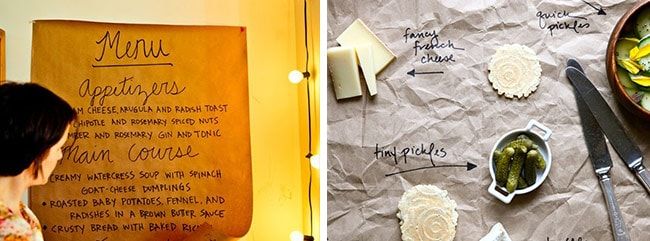 Menu
Appetizers
CHEESE, ARUGULA AND RADISH TOAST
CHIPOTLE AND ROSEMARY SPICED NUTS
AND ROSEMARY GIN AND TONIC
Main Course
CREAMY WATERCRESS SOUP WITH SPINACH
GOAT-CHEESE DUMPLINGS
• ROASTED BABY POTATOES, FENNEL, AND
RADISHES IN A BROWN BUTTER SAUCE
• CRUSTY BREAD WITH BAKED
fancy
french
cheese
quick
pickles
tiny pickles